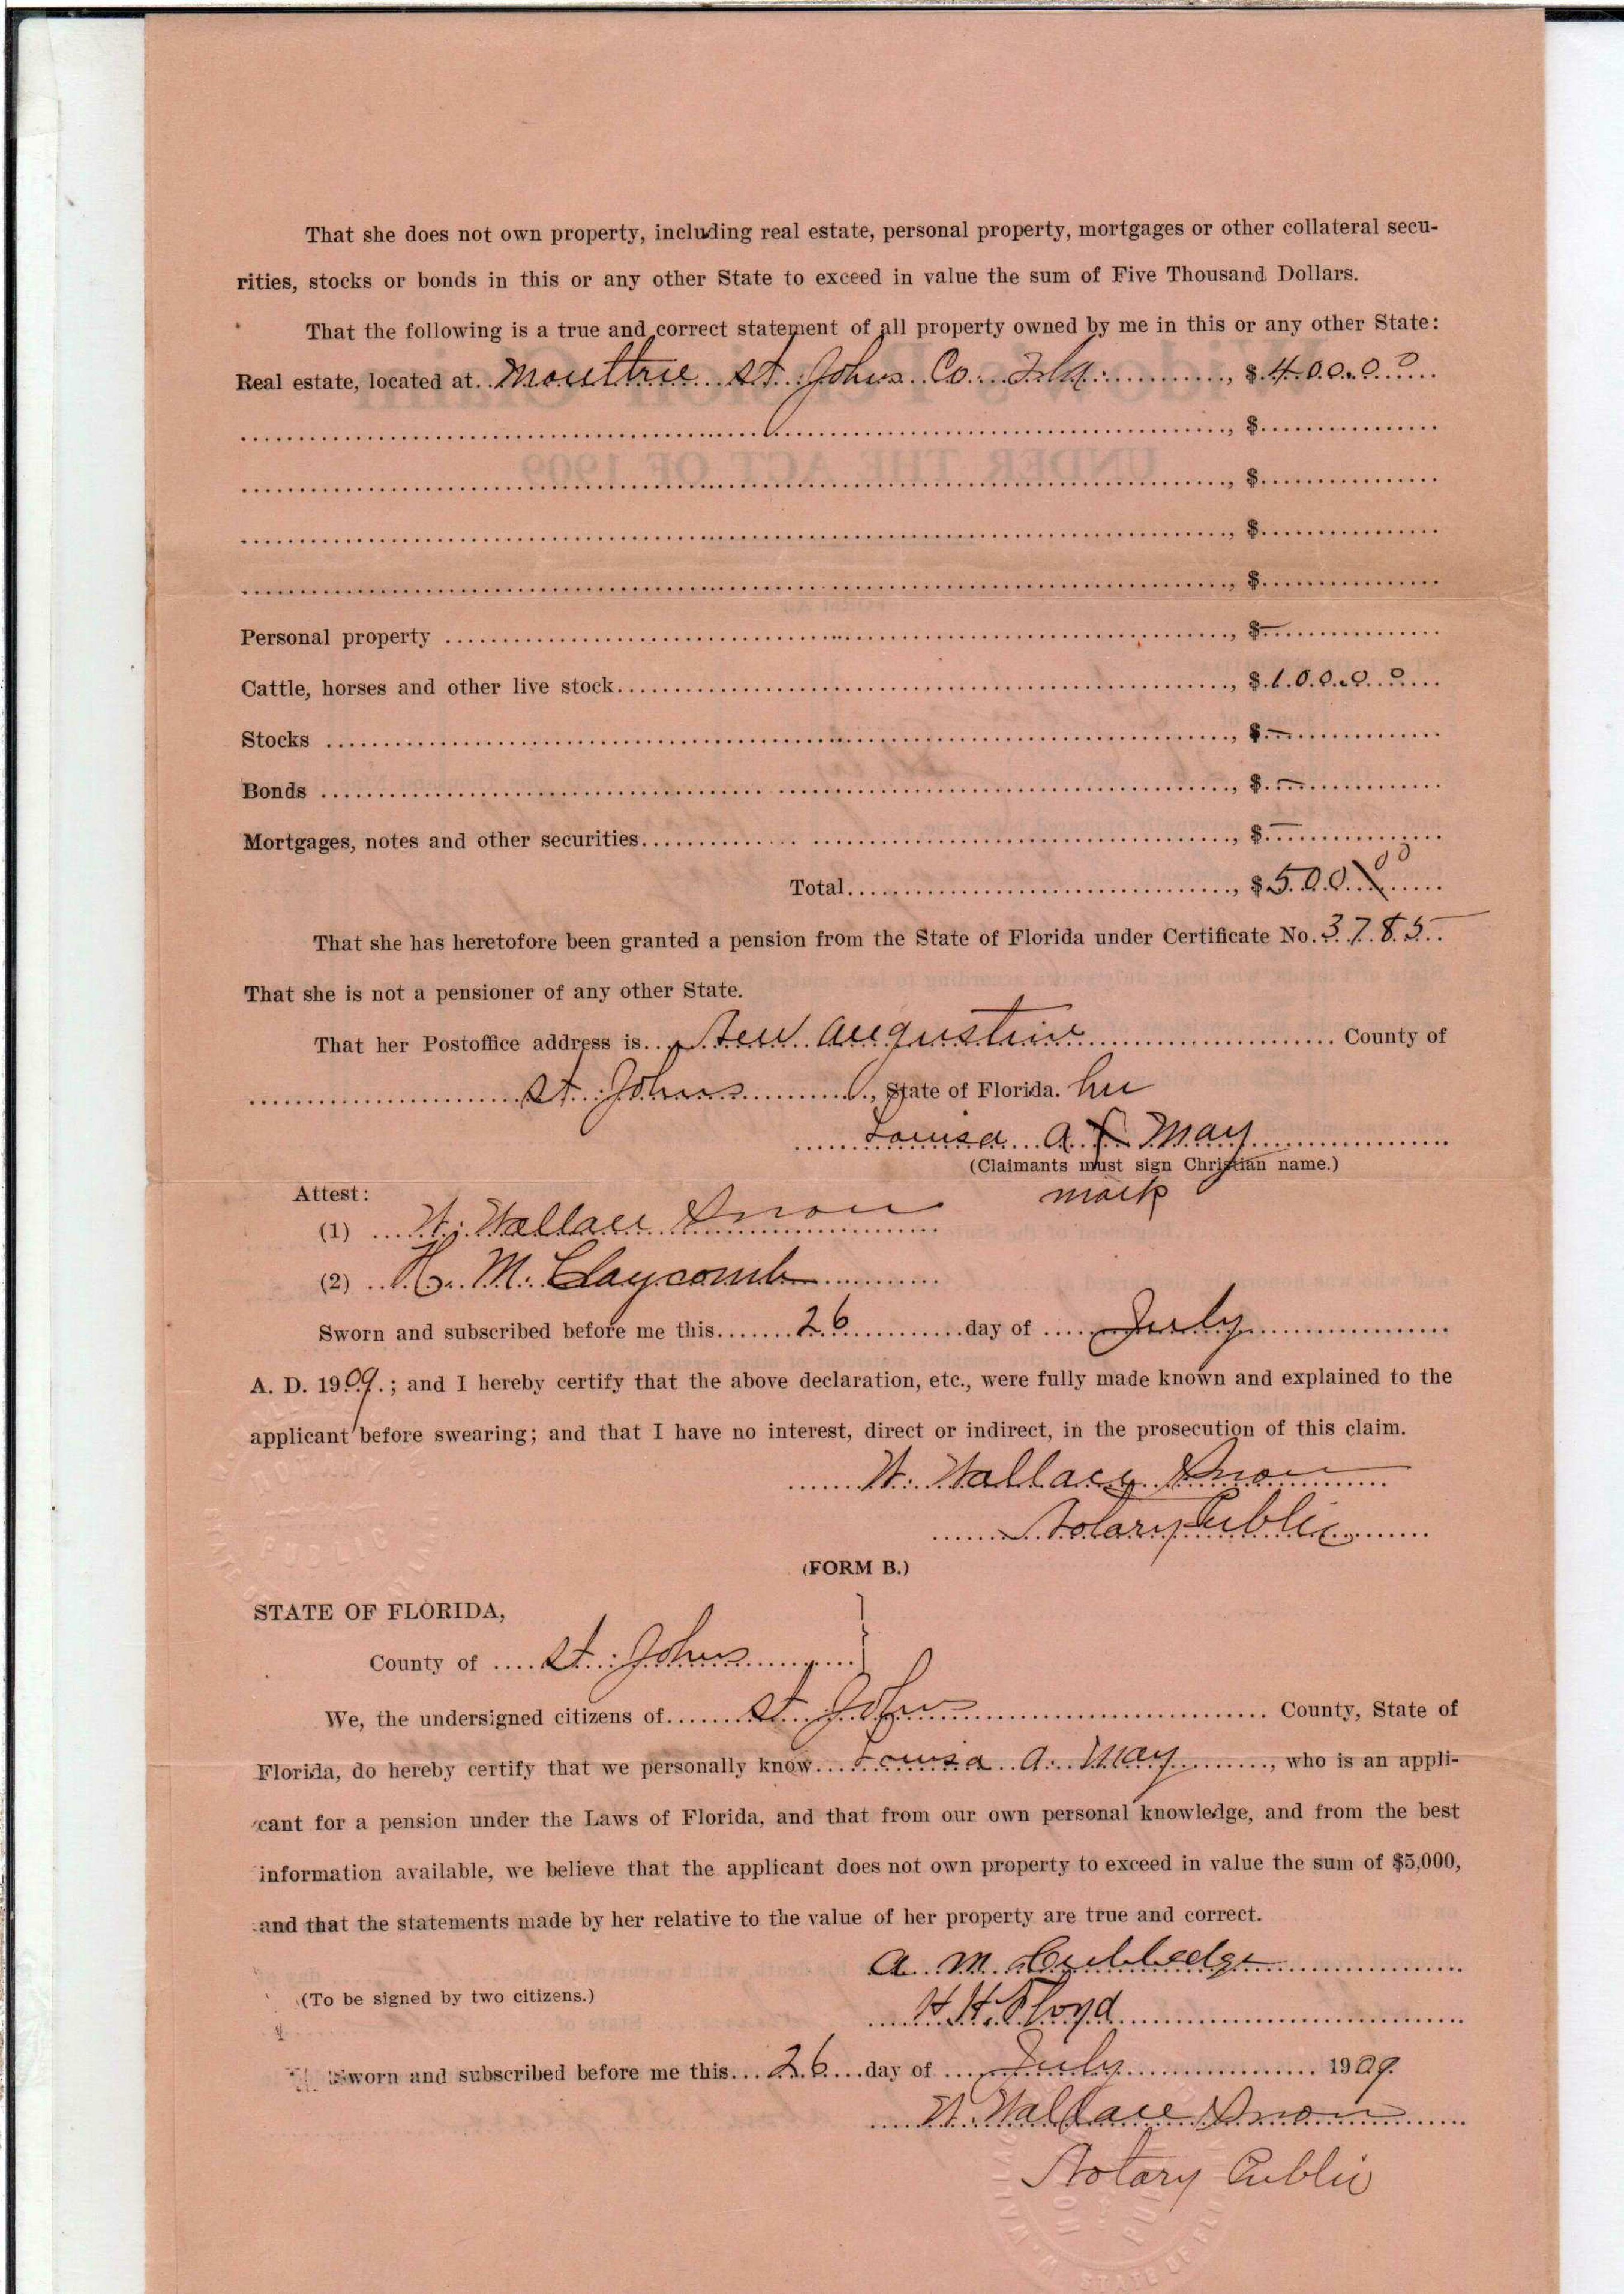 That she does not own property, including real estate, personal property, mortgages or other collateral secu-
rities, stocks or bonds in this or any other State to exceed in value the sum of Five Thousand Dollars.
That the following is a true and correct statement of all property owned by me in this or any other State:
Real estate, located at Moultrie St. Johns Co. Fla. , $ 400.00
, $
, $
, $
, $
Personal property , $ —
Cattle, horses and other live stock , $ 100.00
Stocks , $ —
Bonds , $ —
Mortgages, notes and other securities , $ —
Total , $ 500.00
That she has heretofore been granted a pension from the State of Florida under Certificate No. 3785
That she is not a pensioner of any other State.
That her Postoffice address is New Augustine County of
St. Johns , State of Florida. her
Louisa A. X May
(Claimants must sign Christian name.)
mark
Attest:
(1) W. Wallace Snow
(2) M. Claycomb
Sworn and subscribed before me this 26 day of July
A. D. 1909.; and I hereby certify that the above declaration, etc., were fully made known and explained to the
applicant before swearing; and that I have no interest, direct or indirect, in the prosecution of this claim.
W. Wallace Snow
Notary Public
(FORM B.)
STATE OF FLORIDA,
County of St. Johns
We, the undersigned citizens of St. Johns County, State of
Florida, do hereby certify that we personally know Louisa A. May , who is an appli-
cant for a pension under the Laws of Florida, and that from our own personal knowledge, and from the best
information available, we believe that the applicant does not own property to exceed in value the sum of $5,000,
and that the statements made by her relative to the value of her property are true and correct.
A. M. Cubbedge
(To be signed by two citizens.)
H. H. Floyd
Sworn and subscribed before me this 26 day of July 1909.
W. Wallace Snow
Notary Public